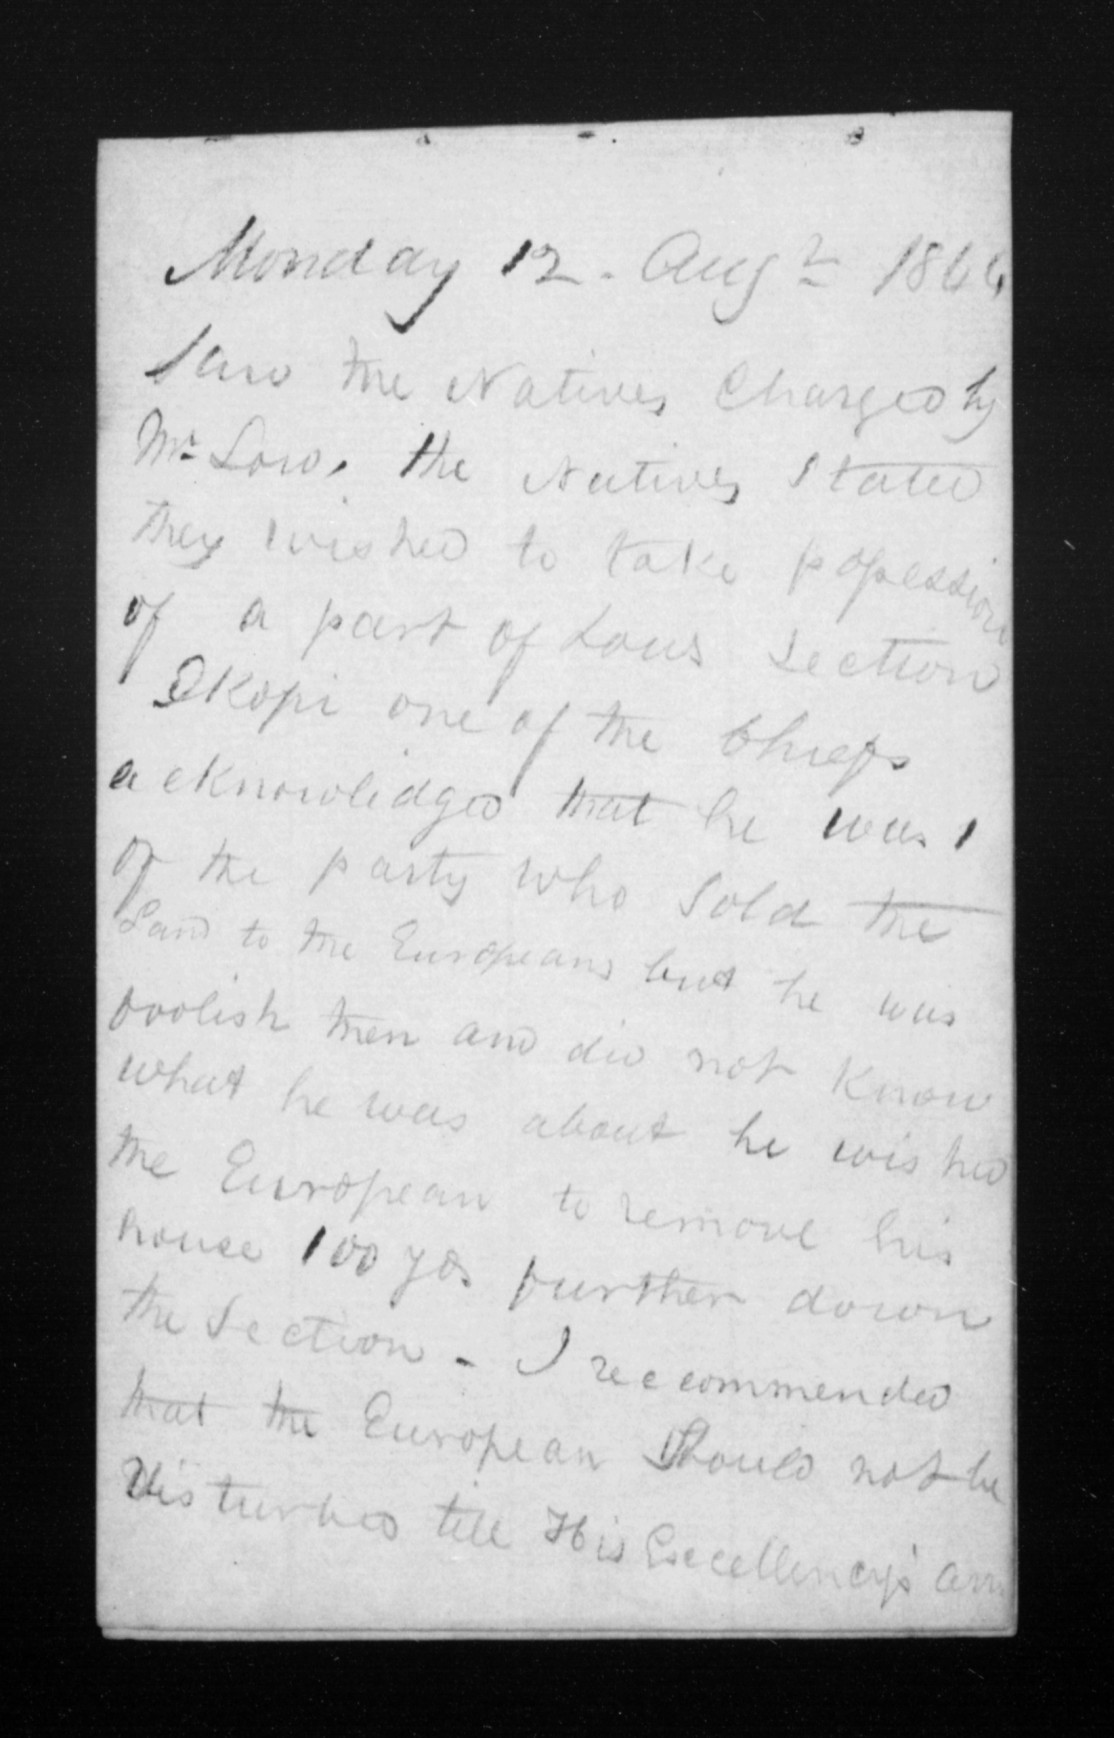 Monday 12 - Augt 1844
Saw the Natives Charged by
Mr Low, the Natives Stated
they wished to take possession
of a part of Lows Section
Ekopi one of the Chiefs
acknowledged that he was 1
of the party who Sold the
Land to the Europeans but he was
foolish then and did not know
what he was about he wished
the European to remove his
house 100 yds further down
the Section - I recommended
that the European Should not be
Disturbed till His Excellency's arr